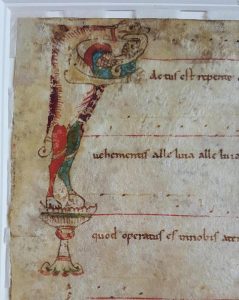 Factus est repente
vehementis alleluia alleluia
quod operatus es in nobis ate